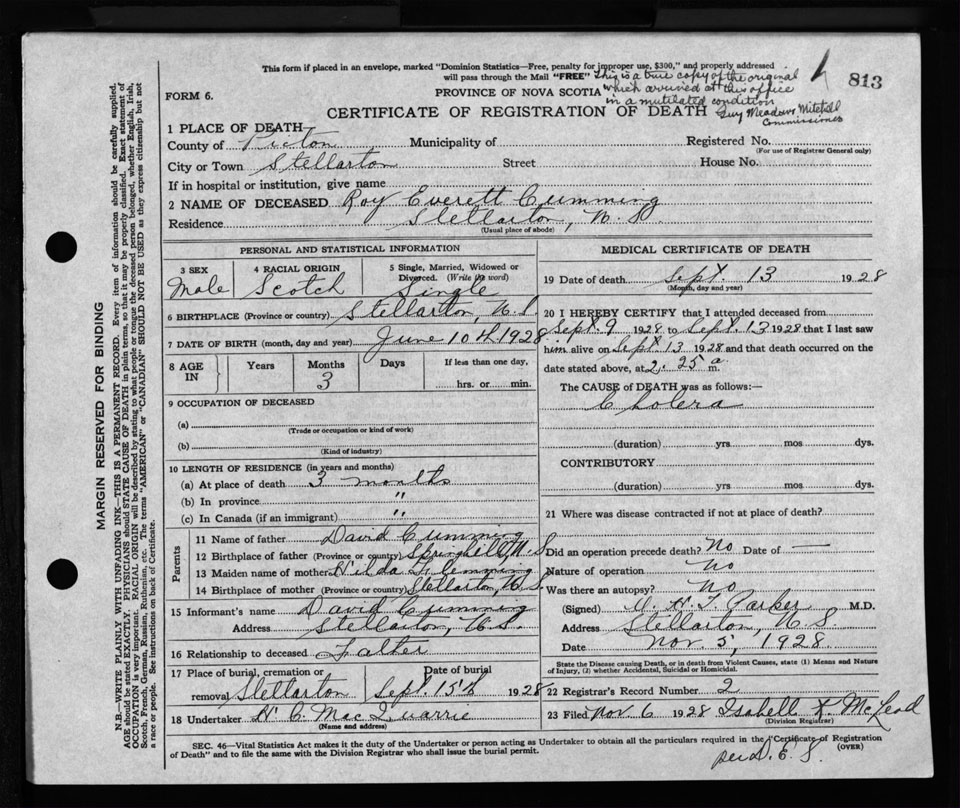 This form if placed in an envelope, marked "Dominion Statistics—Free, penalty for improper use, $300," and properly addressed
will pass through the Mail "FREE" This is a true copy of the original
813
FORM 6.
PROVINCE OF NOVA SCOTIA which arrived at this office
in a mutilated condition
CERTIFICATE OF REGISTRATION OF DEATH
Guy Meadows Mitchell
Commissioner
1 PLACE OF DEATH
County of Pictou Municipality of Registered No.
(For use of Registrar General only)
City or Town Stellarton Street House No.
If in hospital or institution, give name
2 NAME OF DECEASED Roy Everett Cumming
Residence Stellarton, N. S.
(Usual place of abode)
PERSONAL AND STATISTICAL INFORMATION
3 SEX 4 RACIAL ORIGIN 5 Single, Married, Widowed or
Divorced. (Write the word)
Male Scotch Single
6 BIRTHPLACE (Province or country) Stellarton, N.S.
7 DATE OF BIRTH (month, day and year) June 10th 1928
8 AGE IN Years Months Days If less than one day,
3 hrs. or min.
9 OCCUPATION OF DECEASED
(a)
(Trade or occupation or kind of work)
(b)
(Kind of industry)
10 LENGTH OF RESIDENCE (in years and months)
(a) At place of death 3 months
(b) In province "
(c) In Canada (if an immigrant) "
Parents
11 Name of father David Cumming
12 Birthplace of father (Province or country) Springhill N.S
13 Maiden name of mother Hilda Flemming
14 Birthplace of mother (Province or country) Stellarton, N.S
15 Informant's name David Cumming
Address Stellarton, N.S.
16 Relationship to deceased Father
17 Place of burial, cremation or Date of burial
removal Stellarton Sept. 15th 1928
18 Undertaker H C. MacQuarrie
(Name and address)
MEDICAL CERTIFICATE OF DEATH
19 Date of death Sept. 13 1928
(Month, day and year)
20 I HEREBY CERTIFY that I attended deceased from
Sept. 9 1928 to Sept. 13 1928 that I last saw
him alive on Sept 13 1928 and that death occurred on the
date stated above, at 2.25 a m.
The CAUSE of DEATH was as follows:—
Cholera
(duration) yrs mos dys.
CONTRIBUTORY
(duration) yrs mos dys.
21 Where was disease contracted if not at place of death?
Did an operation precede death? No Date of —
Nature of operation no
Was there an autopsy? No
(Signed) Parker M.D.
Address Stellarton, N S
Date Nov. 5, 1928
State the Disease causing Death, or in death from Violent Causes, state (1) Means and Nature
of Injury, (2) whether Accidental, Suicidal or Homicidal.
22 Registrar's Record Number 2
23 Filed Nov 6 1928 Isabell K McLeod
(Division Registrar)
SEC. 46—Vital Statistics Act makes it the duty of the Undertaker or person acting as Undertaker to obtain all the particulars required in the "Certificate of Registration
of Death" and to file the same with the Division Registrar who shall issue the burial permit.
(OVER)
per D. E. S.
MARGIN RESERVED FOR BINDING
N.B.—WRITE PLAINLY WITH UNFADING INK—THIS IS A PERMANENT RECORD. Every item of information should be carefully supplied.
AGE should be stated EXACTLY. PHYSICIANS should STATE CAUSE OF DEATH in plain terms, so that it may be properly classified. Exact statement of
OCCUPATION is very important. RACIAL ORIGIN will be described by stating to what people or tongue the deceased person belonged, whether English, Irish,
Scotch, French, German, Russian, Ruthenian, etc. The terms "AMERICAN" or "CANADIAN" SHOULD NOT BE USED as they express citizenship but not
a race or people. See instructions on back of Certificate.